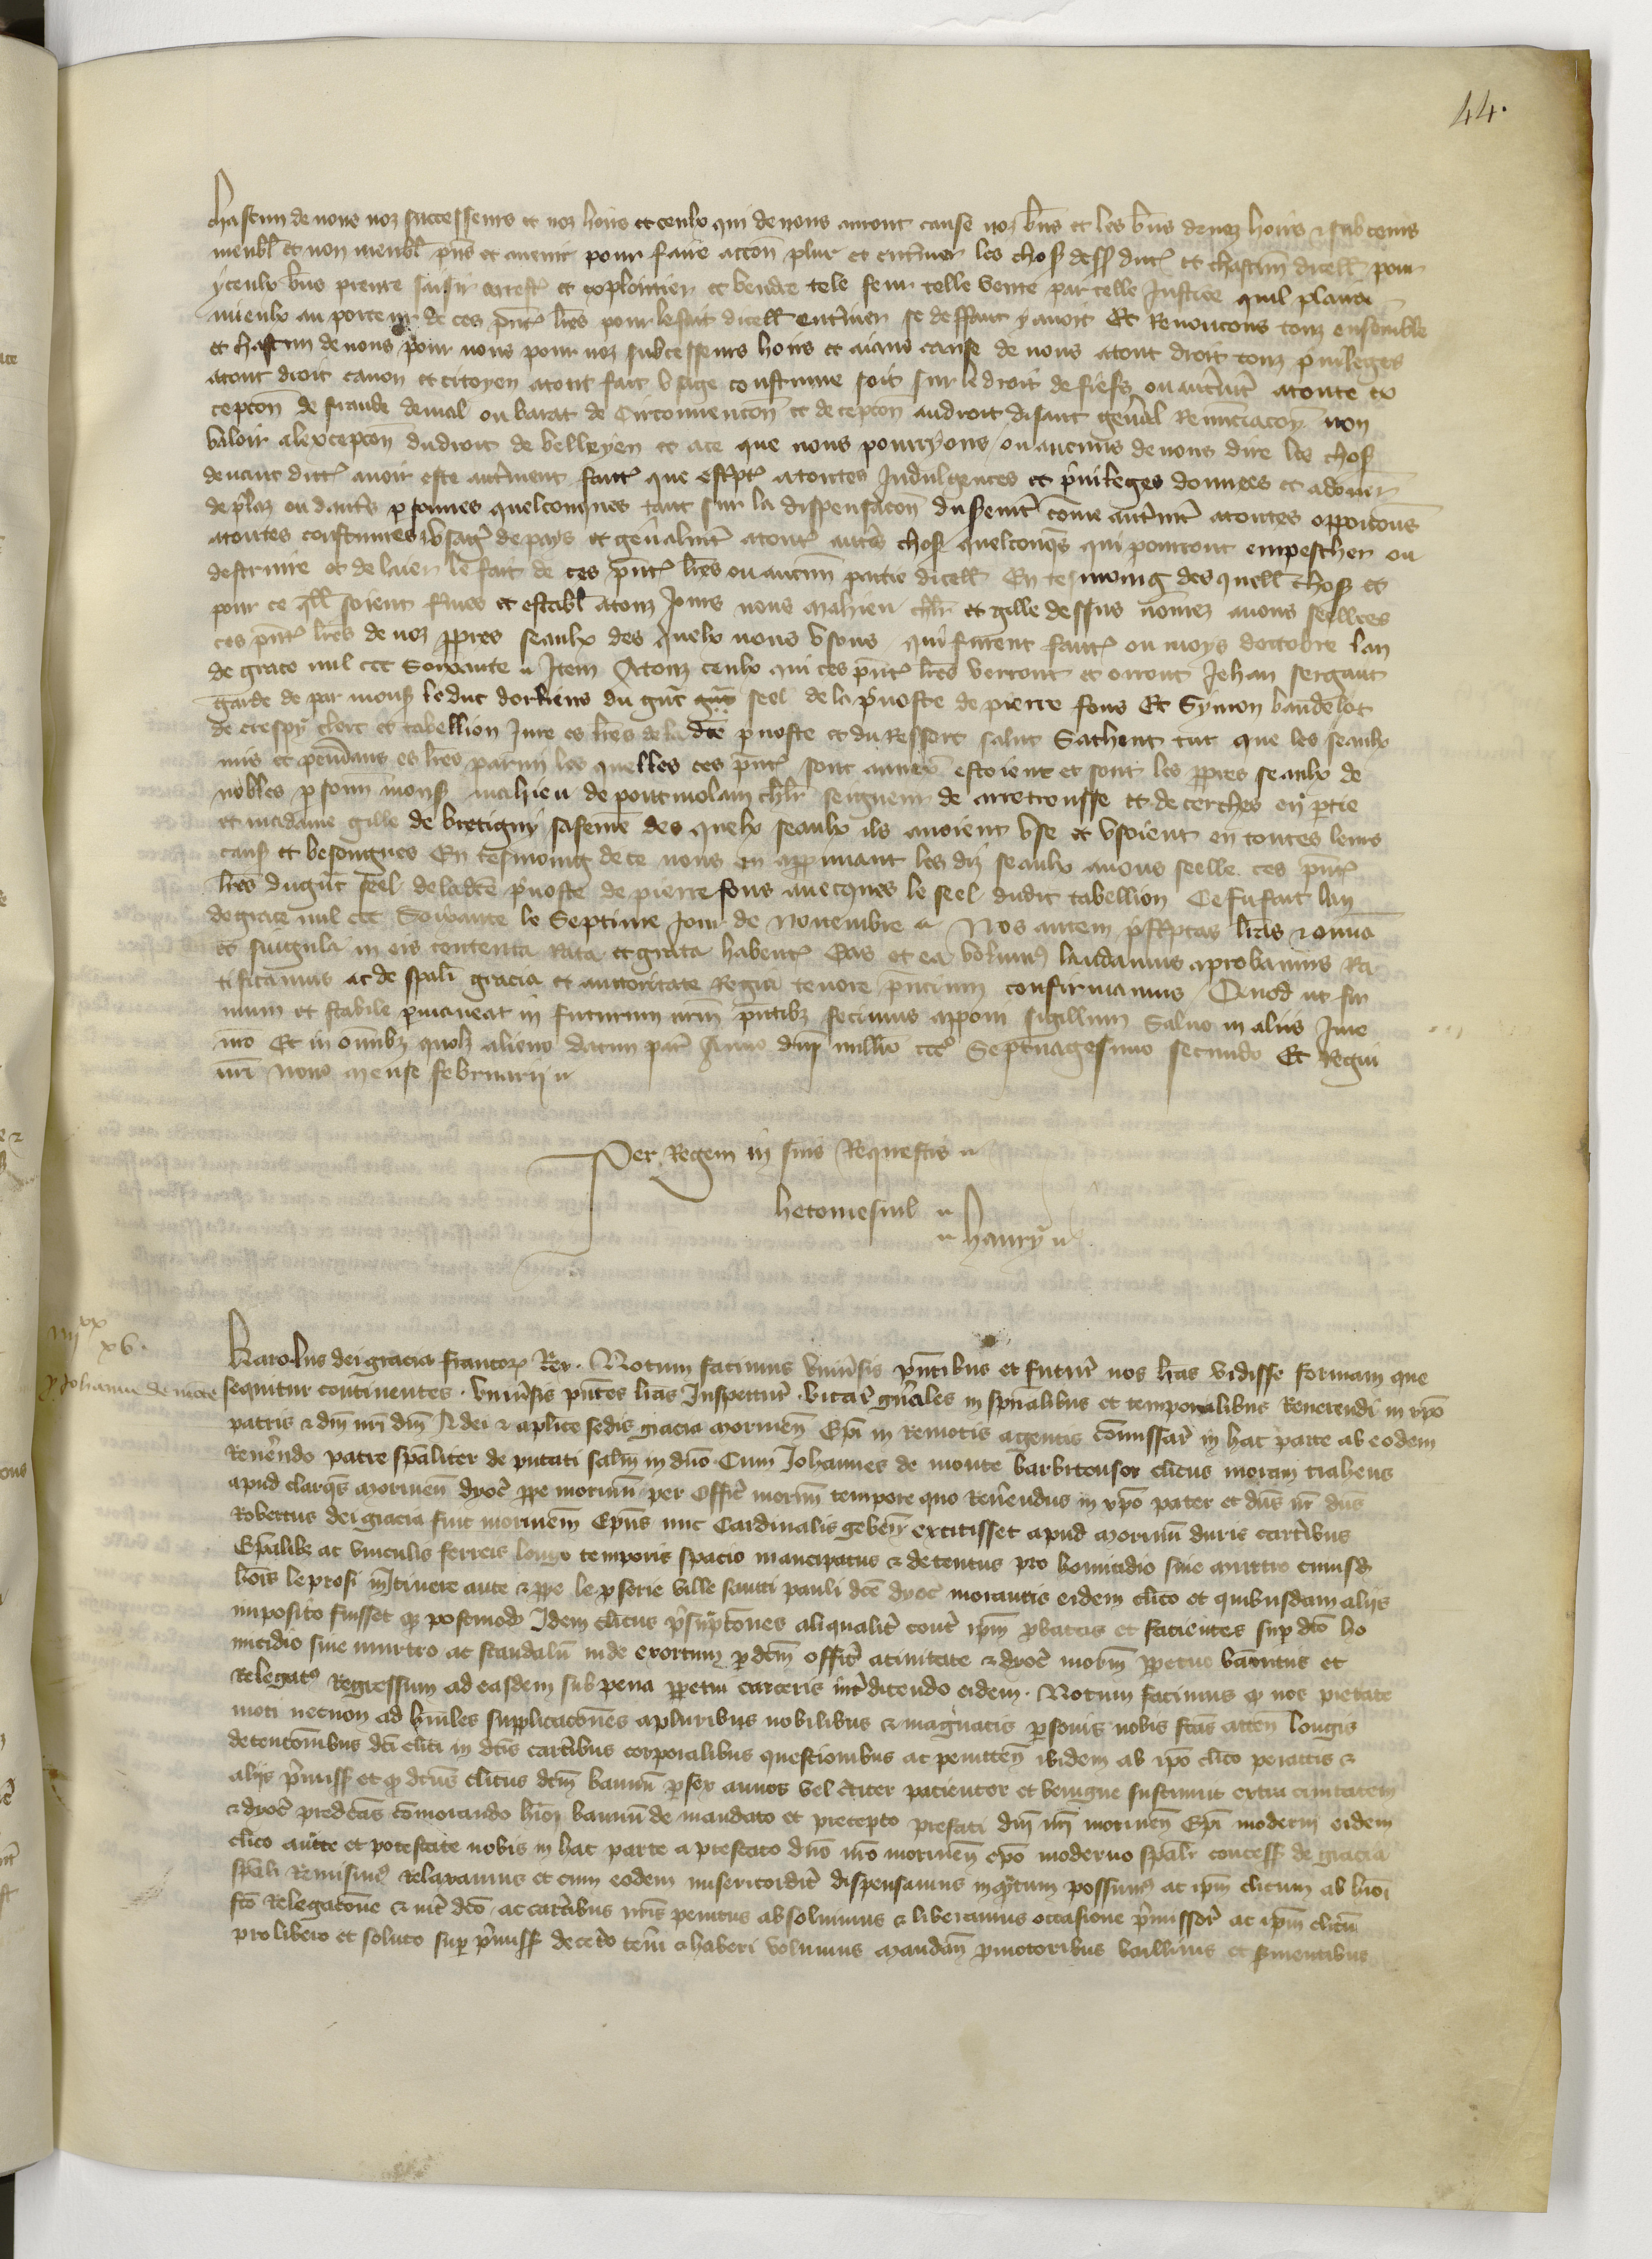 44.
chascun de nous noz successeurs et noz hoirs et ceulx qui de nous auront cause noz bns et les bns de noz hoirs & subcess
meubl et non meubl pns et auenir pour faire accon plur et enterner les chos dess dict et chascun dicell pour
yceulx bns prenre saisir arrest et exploitier et vendre tele feur telle vente par telle Justice quil plaira
mieulx au porteur de ces pnt lres pour le fait dicell enterner se deffaut y auoit Et Renoncons touz ensemble
et chascun de nous pour nous pour noz subcesseurs hoirs et aians cause de nous atout droit touz priuileges
atout droit canon et citoyen atout fait vsage coustume soit sur le droit de fiefs ou autremt atoute ex
cepcon de fraude de mal ou barat de Circonuencon et decepcon au droit disant general Renunciacon non
valoir alexcepcon du droit de velleyen et ace que nous pourryons ou aucuns de nous dire les chos
deuant dict auoir este autrement faict que escript atoutes Indulgences et priuileges donnees et adonner
de prlaz ou dautrs psonnes quelconques tant sur la dispensacon du seremt come autremt atoutes opposicons
atoutes coustumes & vsag de pays et generalmt atout autrs chos quelconqs qui pourront empescher ou
destruire et delaier le fait de ces pnt lres ou aucun partie dicell En tesmoing des quell chos et
pour ce qll soient fmes et establ atouz Jours nous mahieu chlr et gille dessus nomez auons seellees
ces pnt lres de noz ppres seaulx des quelx nous vsons qui furent faict ou moys doctobre lan
de grace mil ccc Soixante Item Atouz ceulx qui ces pnt lres verront et orront Jehan sergant
garde de par mons le duc dorliens du gnt seel de la preuoste de pierre fons Et Symon baudelot
de crespy clerc et tabellion Jure es lres de la dce preuoste et du Ressort salut Sachent tuit que les seaulx
mis et pendans es lres parmi les quelles ces pnt sont annex estoient et sont les ppres seaulx de
nobles psonn mons mahieu de pontmolain chlr seigneur de et de cerches en ptie
et madame gille de bretigny safeme des quelx seaulx ils auoient vse et vsoient en toutes leurs
caus et besongnes En tesmoing de ce nous en appuant les diz seaulx auons seelle ces pnt
lres du gnt seel de ladce preuoste de pierre fons auecques le seel dudit tabellion Ce fu fait lan
de grace mil ccc Soixante le Septime Jour de Nouembre Nos autem pscptas lras & omia
et singula in eis contenta Rata et grata habent Eas et ea volum laudamus aprobamus Ra
tificamus ac de spali gracia et auctoritate Regia tenore pncium confirmamus Quod ut fir
mum et stabile pmaneat in futurum nrm pntibz fecimus apponi sigillum Saluo in aliis Jure
nro Et in omibz quolz alieno datum par Anno dni millio ccc Septuagesimo secundo Et Regni
nri nono mense februarij
Per Regem in suis Requestis
hetomesnil
hanry
iiij xx xv.
p Johanne de mote
Karolus dei gracia francorz Rex. Notum facimus vniuersis pntibus et futur nos lras vidisse formam que
sequitur continentes. vniuersis pntes lras Inspectur. vicar gnales in spualibus et temporalibus Reuerendi in xpo
patris & dni nri dni dei & aplice sedis gracia morinen Epi in remotis agentis comissar in hac parte ab eodem
Reuerendo patre spaliter deputati saltm in dno Cum Johannes de monte barbitonsor clicus moram trahens
apud clarqs morinen dyoc ppe morinum per offic morin tempore quo Reuerendus in xpo pater et dns nr dns
Robertus dei gracia tuc morinem Epus nuc Cardinalis geben extitisset apud morinu duris carcibus
Epalibz ac vinculis ferreis longo temporis spacio mancipatus & detentus pro homicidio siue murtro cuiusd
hois leprosi in Itinere ante & ppe leprserie ville sancti pauli dce dyoc morantis eidem clico et quibusdam aliis
imposito fuisset qz postmodo Idem clicus presumptiones aliqualit contr ipm probatas et facientes sup dco ho
micidio siue murtro ac scandalu inde exortum p dcm offic aciuitate & dyoc morin ppetuo bannitus et
Relegat Regressum ad easdem sub pena ppetui carceris intdicendo eidem. Notum facimus qz nos pietate
moti necnon ad humiles supplicacones apluribus nobilibus & magnatis personis nobis fcas atten longis
detenconibus dci clici in dcis carcibus corporalibus questionibus ac peniten ibidem ab ipo clico peractis &
alijs pmiss et qz dcus clicus dcm bannu p sex annos vel citer pacienter et benigne sustinuit extra ciuitatem
& dyoc predcas comorando hmoi bannu de mandato et precepto prefati dni nri morinen Epi moderni eidem
clico aucte et potestate nobis in hac parte a prefato dno nro morinen epo moderno spalr concess de gracia
spali Remisim Relaxamus et cum eodem misericordit dispensamus inqtum possum ac ipm clicum ab hmoi
sco Relegacone & int dco ac carcibus nris penitus absoluimus & liberamus occasione pmissor ac ipm clicu
pro libero et soluto sup pmiss decero teni & haberi volumus mandan pmotoribus bailliuis et seruientibus